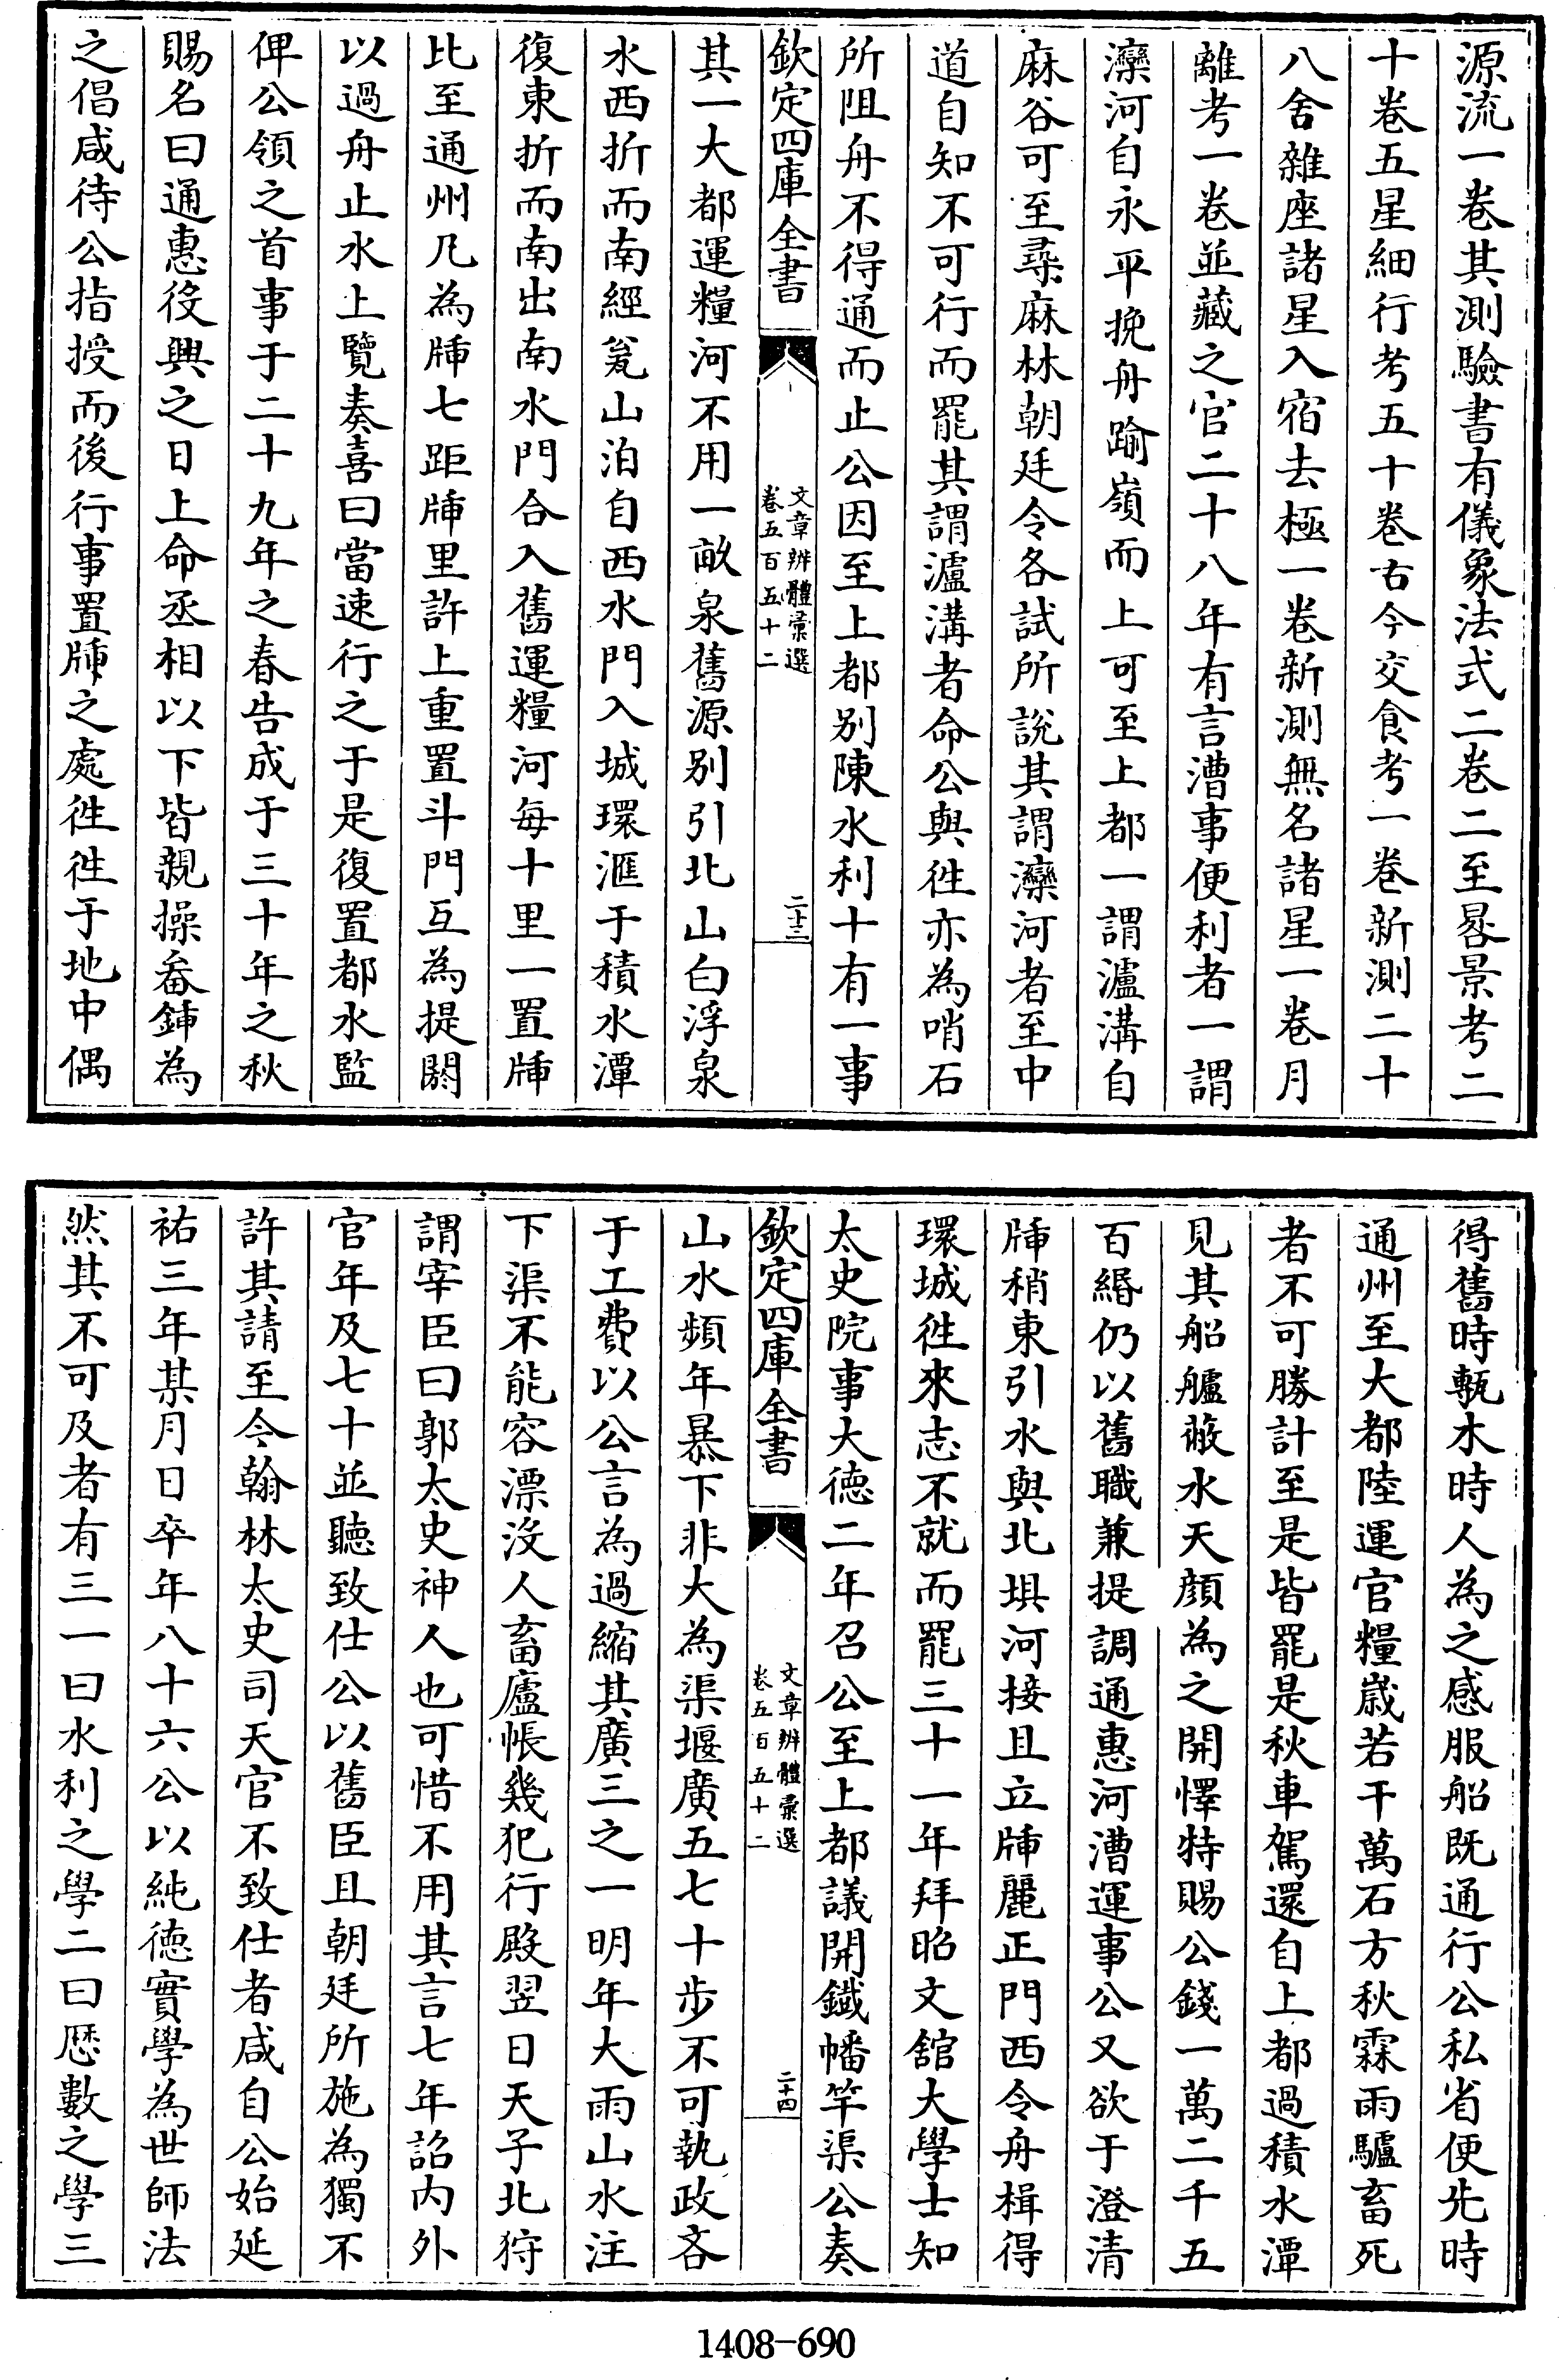 源流一卷其測驗書有儀象法式二卷二至晷景考二
十卷五星細行考五十卷古今交食考一卷新測二十
八舍雜座諸星入宿去極一卷新測無名諸星一卷月
離考一卷並藏之官二十八年有言漕事便利者一謂
灤河自永平挽舟踰嶺而上可至上都一謂瀘溝自
麻谷可至尋麻林朝廷令各試所說其謂灤河者至中
道自知不可行而罷其謂瀘溝者命公與徃亦為哨石
所阻舟不得通而止公因至上都别陳水利十有一事
欽定四庫全書
文章辨體彚選
卷五百五十二
二十三
其一大都運糧河不用一畝泉舊源别引北山白浮泉
水西折而南經瓮山泊自西水門入城環滙于積水潭
復東折而南出南水門合入舊運糧河每十里一置牐
比至通州凡為牐七距牐里許上重置斗門互為提閼
以過舟止水上覽奏喜曰當速行之于是復置都水監
俾公領之首事于二十九年之春告成于三十年之秋
賜名曰通惠役興之日上命丞相以下皆親操畚鍤為
之倡咸待公指授而後行事置牐之處徃徃于地中偶
得舊時甎木時人為之感服船既通行公私省便先時
通州至大都陸運官糧嵗若干萬石方秋霖雨驢畜死
者不可勝計至是皆罷是秋車駕還自上都過積水潭
見其船艫蔽水天顔為之開懌特賜公錢一萬二千五
百緡仍以舊職兼提調通惠河漕運事公又欲于澄清
牐稍東引水與北埧河接且立牐麗正門西令舟楫得
環城徃來志不就而罷三十一年拜昭文舘大學士知
太史院事大徳二年召公至上都議開鐵幡竿渠公奏
欽定四庫全書
文章辨體彚選
卷五百五十二
二十四
山水頻年暴下非大為渠堰廣五七十步不可執政吝
于工費以公言為過縮其廣三之一明年大雨山水注
下渠不能容漂沒人畜廬帳幾犯行殿翌日天子北狩
謂宰臣曰郭太史神人也可惜不用其言七年詔内外
官年及七十並聽致仕公以舊臣且朝廷所施為獨不
許其請至今翰林太史司天官不致仕者咸自公始延
祐三年某月日卒年八十六公以純徳實學為世師法
然其不可及者有三一曰水利之學二曰厯數之學三
1408-690